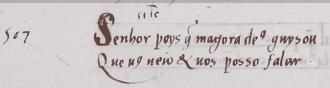 507
Senhor poys q̃ magora de9 guysou
Que u9 ueio & uos posso falar